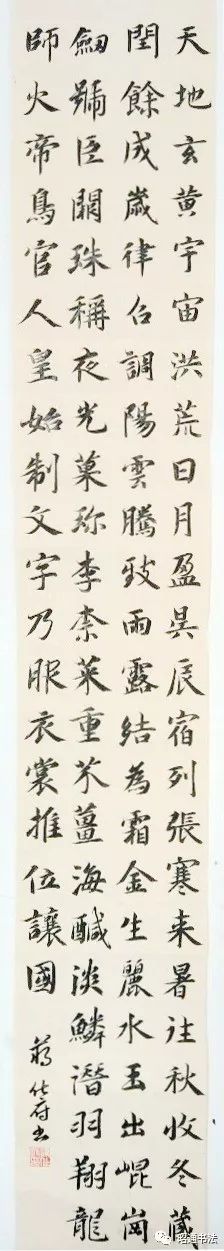 天地玄黄宇宙洪荒日月盈昃辰宿列張寒来暑往秋收冬藏
閏餘成歲律召調陽雲騰致雨露結為霜金生麗水玉出崐崗
劍號巨闕珠稱夜光菓珎李柰菜重芥薑海醎淡鱗潛羽翔龍
師火帝鳥官人皇始制文字乃服衣裳推位讓國
蒋仕府书
昭通书法